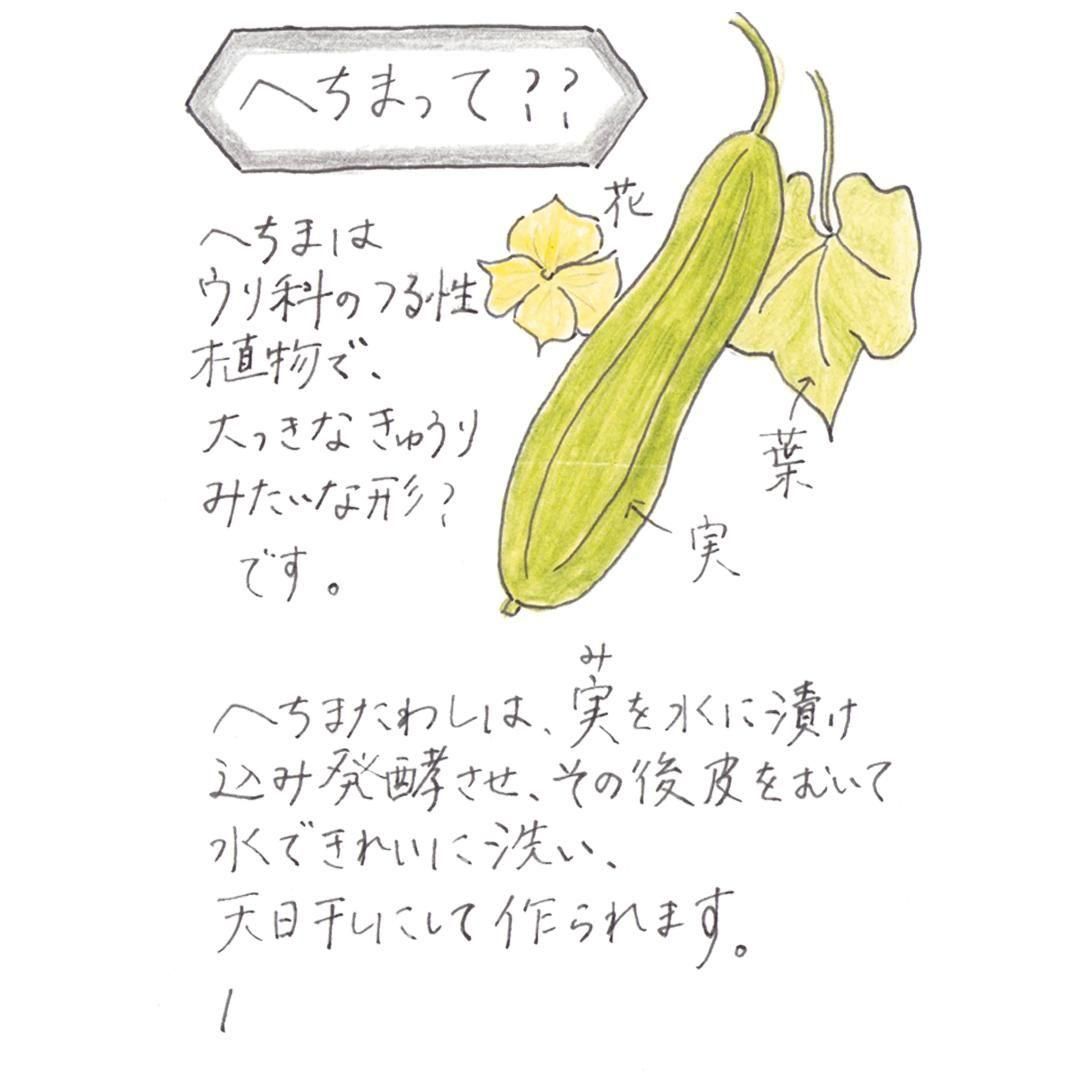 へちまって??
へちまは
ウリ科のつる性
植物で、
大っきなきゅうり
みたいな形?
です。
花
葉
実
み
へちまたわしは、実を水に漬け
込み発酵させ、その後皮をむいて
水できれいに洗い、
天日干しにして作られます。
1